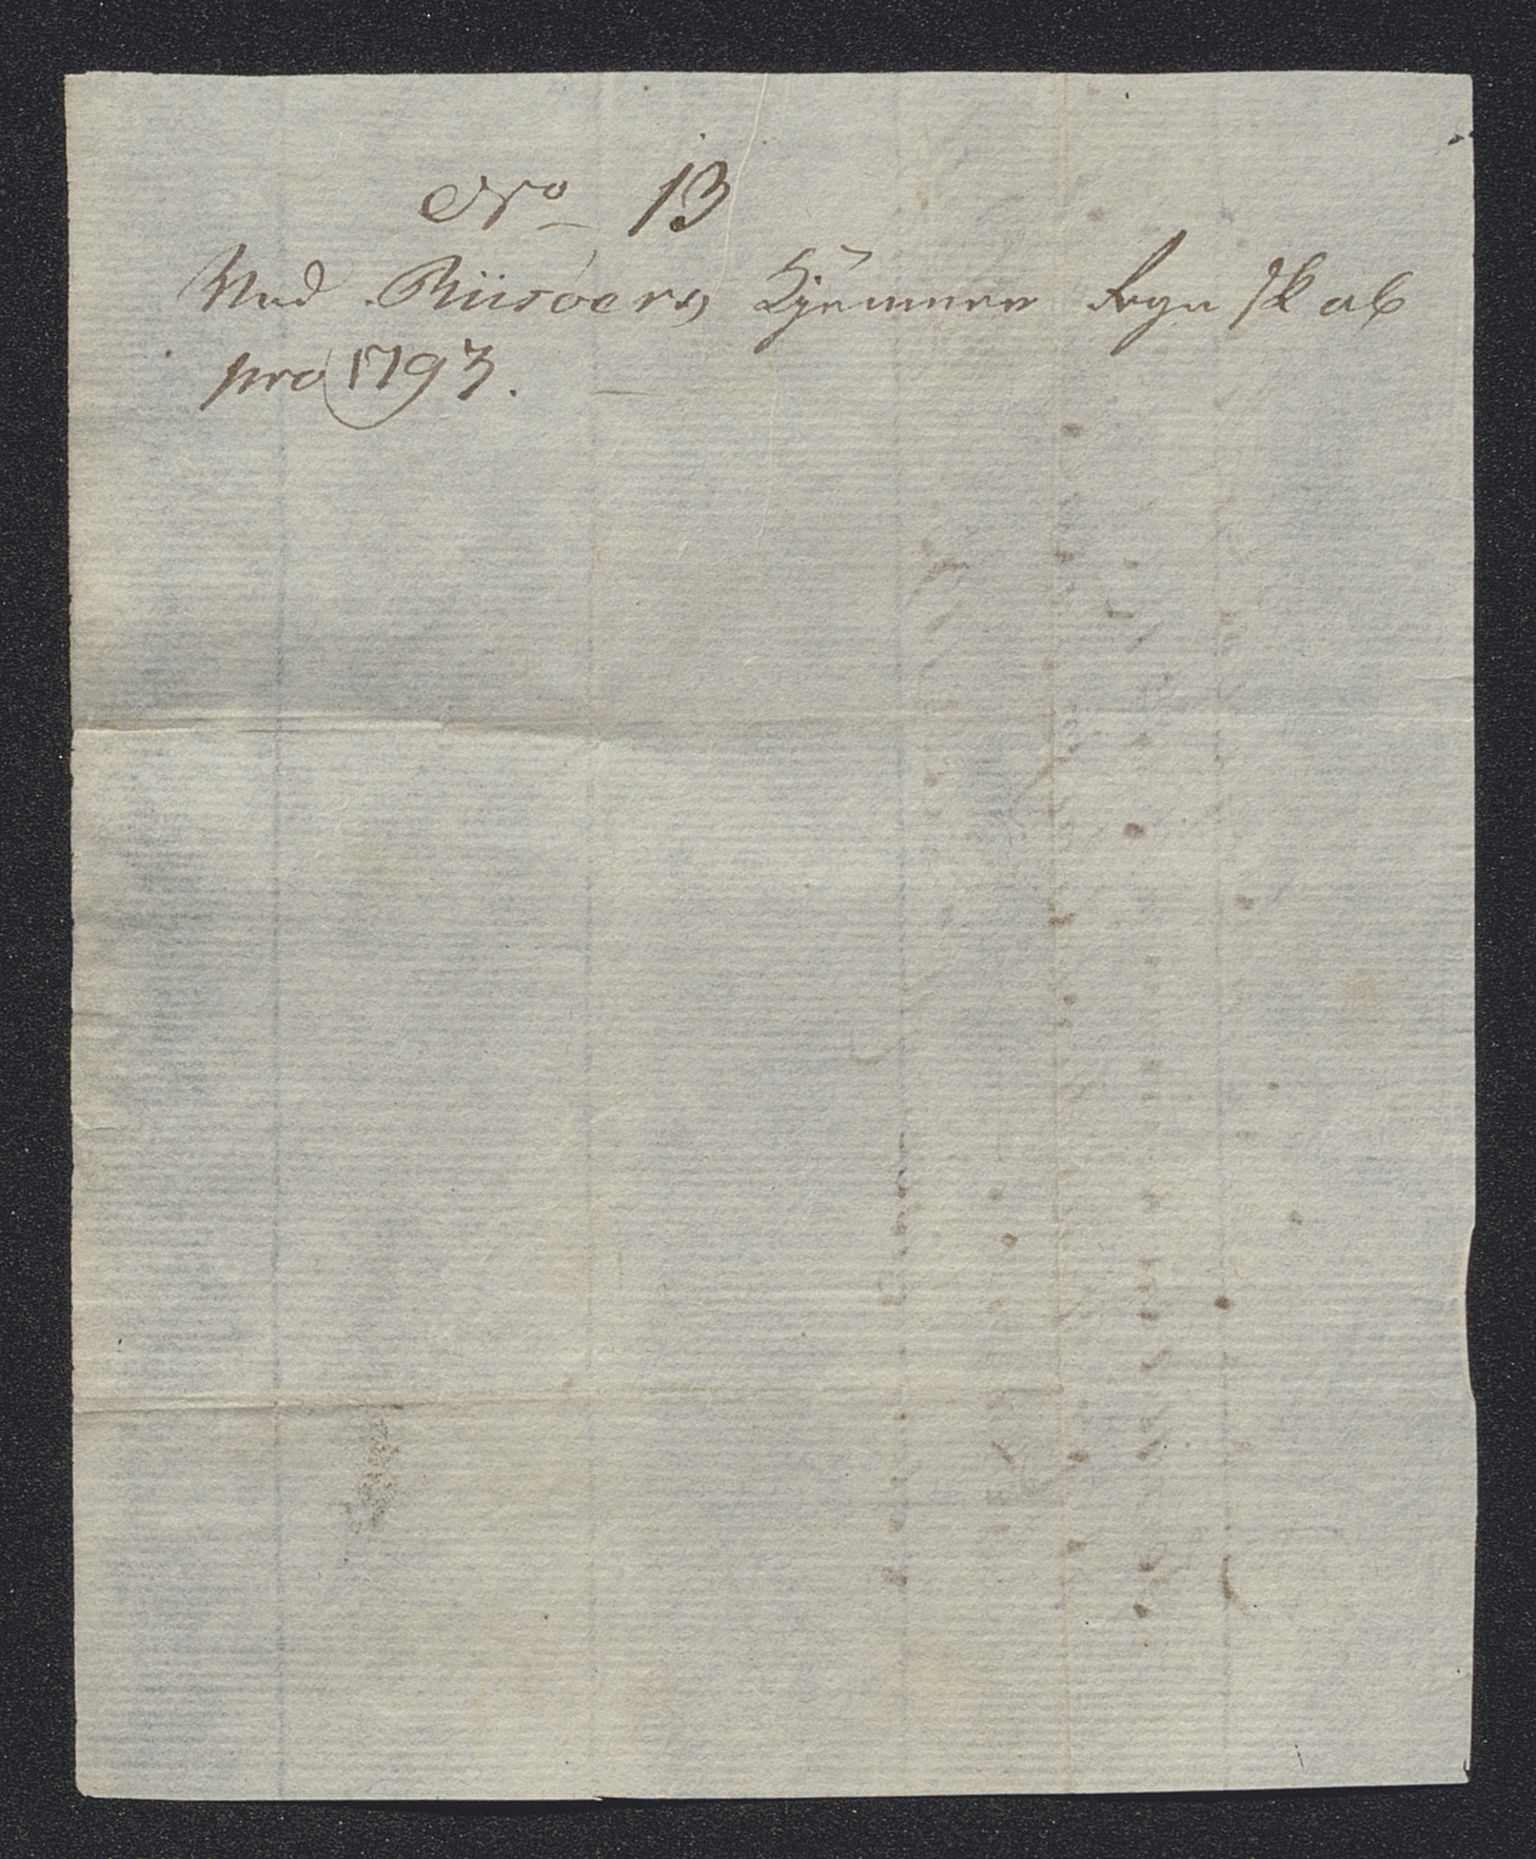 No 13
Med Riisøers Kjemner Regnskab
pro 1793.